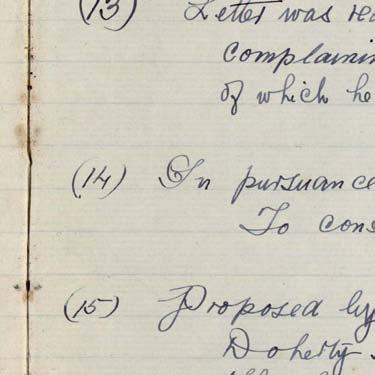 (13) Letter was rea
complainin
of which he
(14) In pursuance
To cons
(15) Proposed by
Doherty